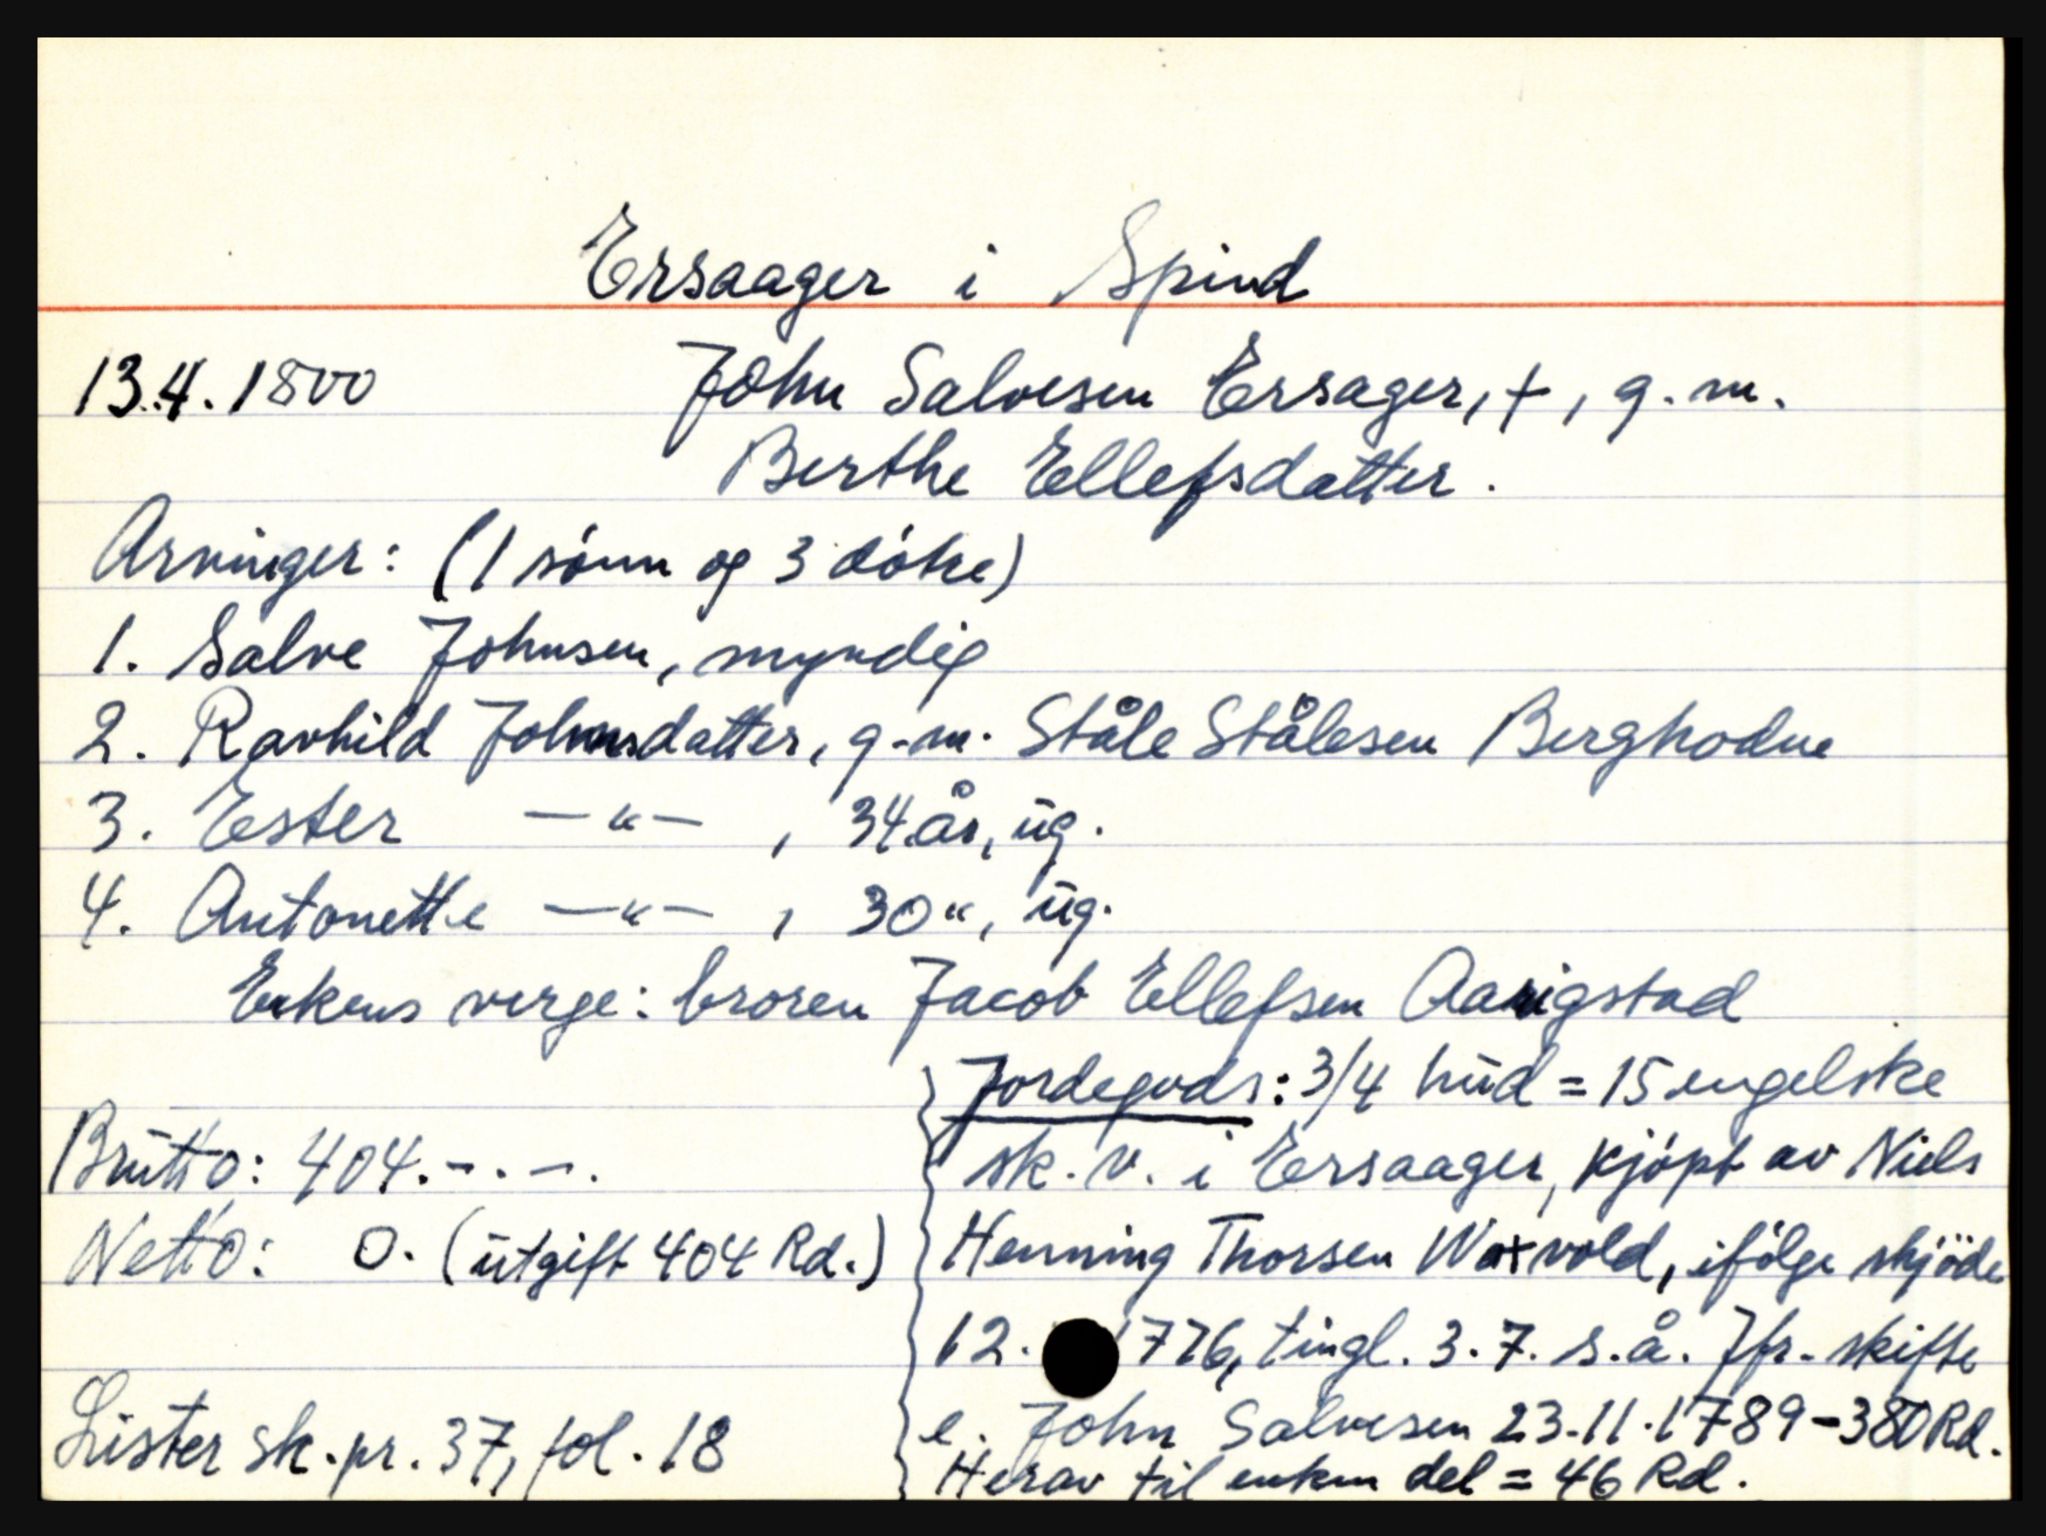 Ersaager i Spind
13.4.1800 John Salvesen Ersager, +, g.m.
Berthe Ellefsdatter.
Arvinger: (1 sønn og 3 døtre)
1. Salve Johnsen, myndig
2. Ravhild Johnsdatter, g.m. Ståle Stålesen Berghodne
3. Ester —"— , 34 år, ug.
4. Antonette —"— , 30 ", ug.
Enkens verge: broren Jacob Ellefsen Aarigstad
Brutto: 404.-.-.
Netto: 0. (utgift 404 Rd.)
Lister sk.pr. 37, fol. 18
Jordegods: 3/4 hud = 15 engelske
sk. v. i Ersaager, kjöpt av Niels
Henning Thorsen Watvold, ifølge skjöde
12. 1776, tingl. 3.7. s.å. Jfr. skifte
e. John Salvesen 23.11.1789 - 380 Rd.
Herav til enken del = 46 Rd.